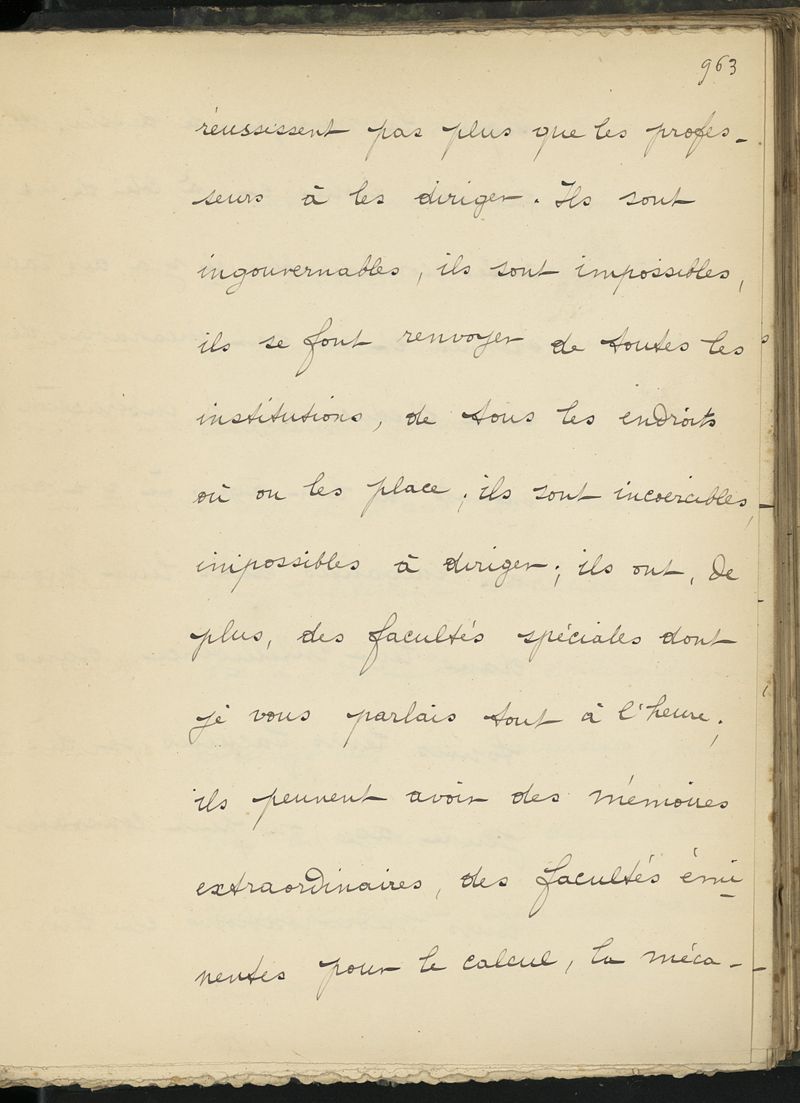 963
réussissent pas plus que les profes-
seurs à les diriger. Ils sont
ingouvernables, ils sont impossibles,
ils se font renvoyer de toutes les
institutions, de tous les endroits
où on les place, ils sont incoercibles,
impossibles à diriger; ils ont, de
plus, des facultés spéciales dont
je vous parlais tout à l'heure;
ils peuvent avoir des mémoires
extraordinaires, des facultés émi-
nentes pour le calcul, la méca-